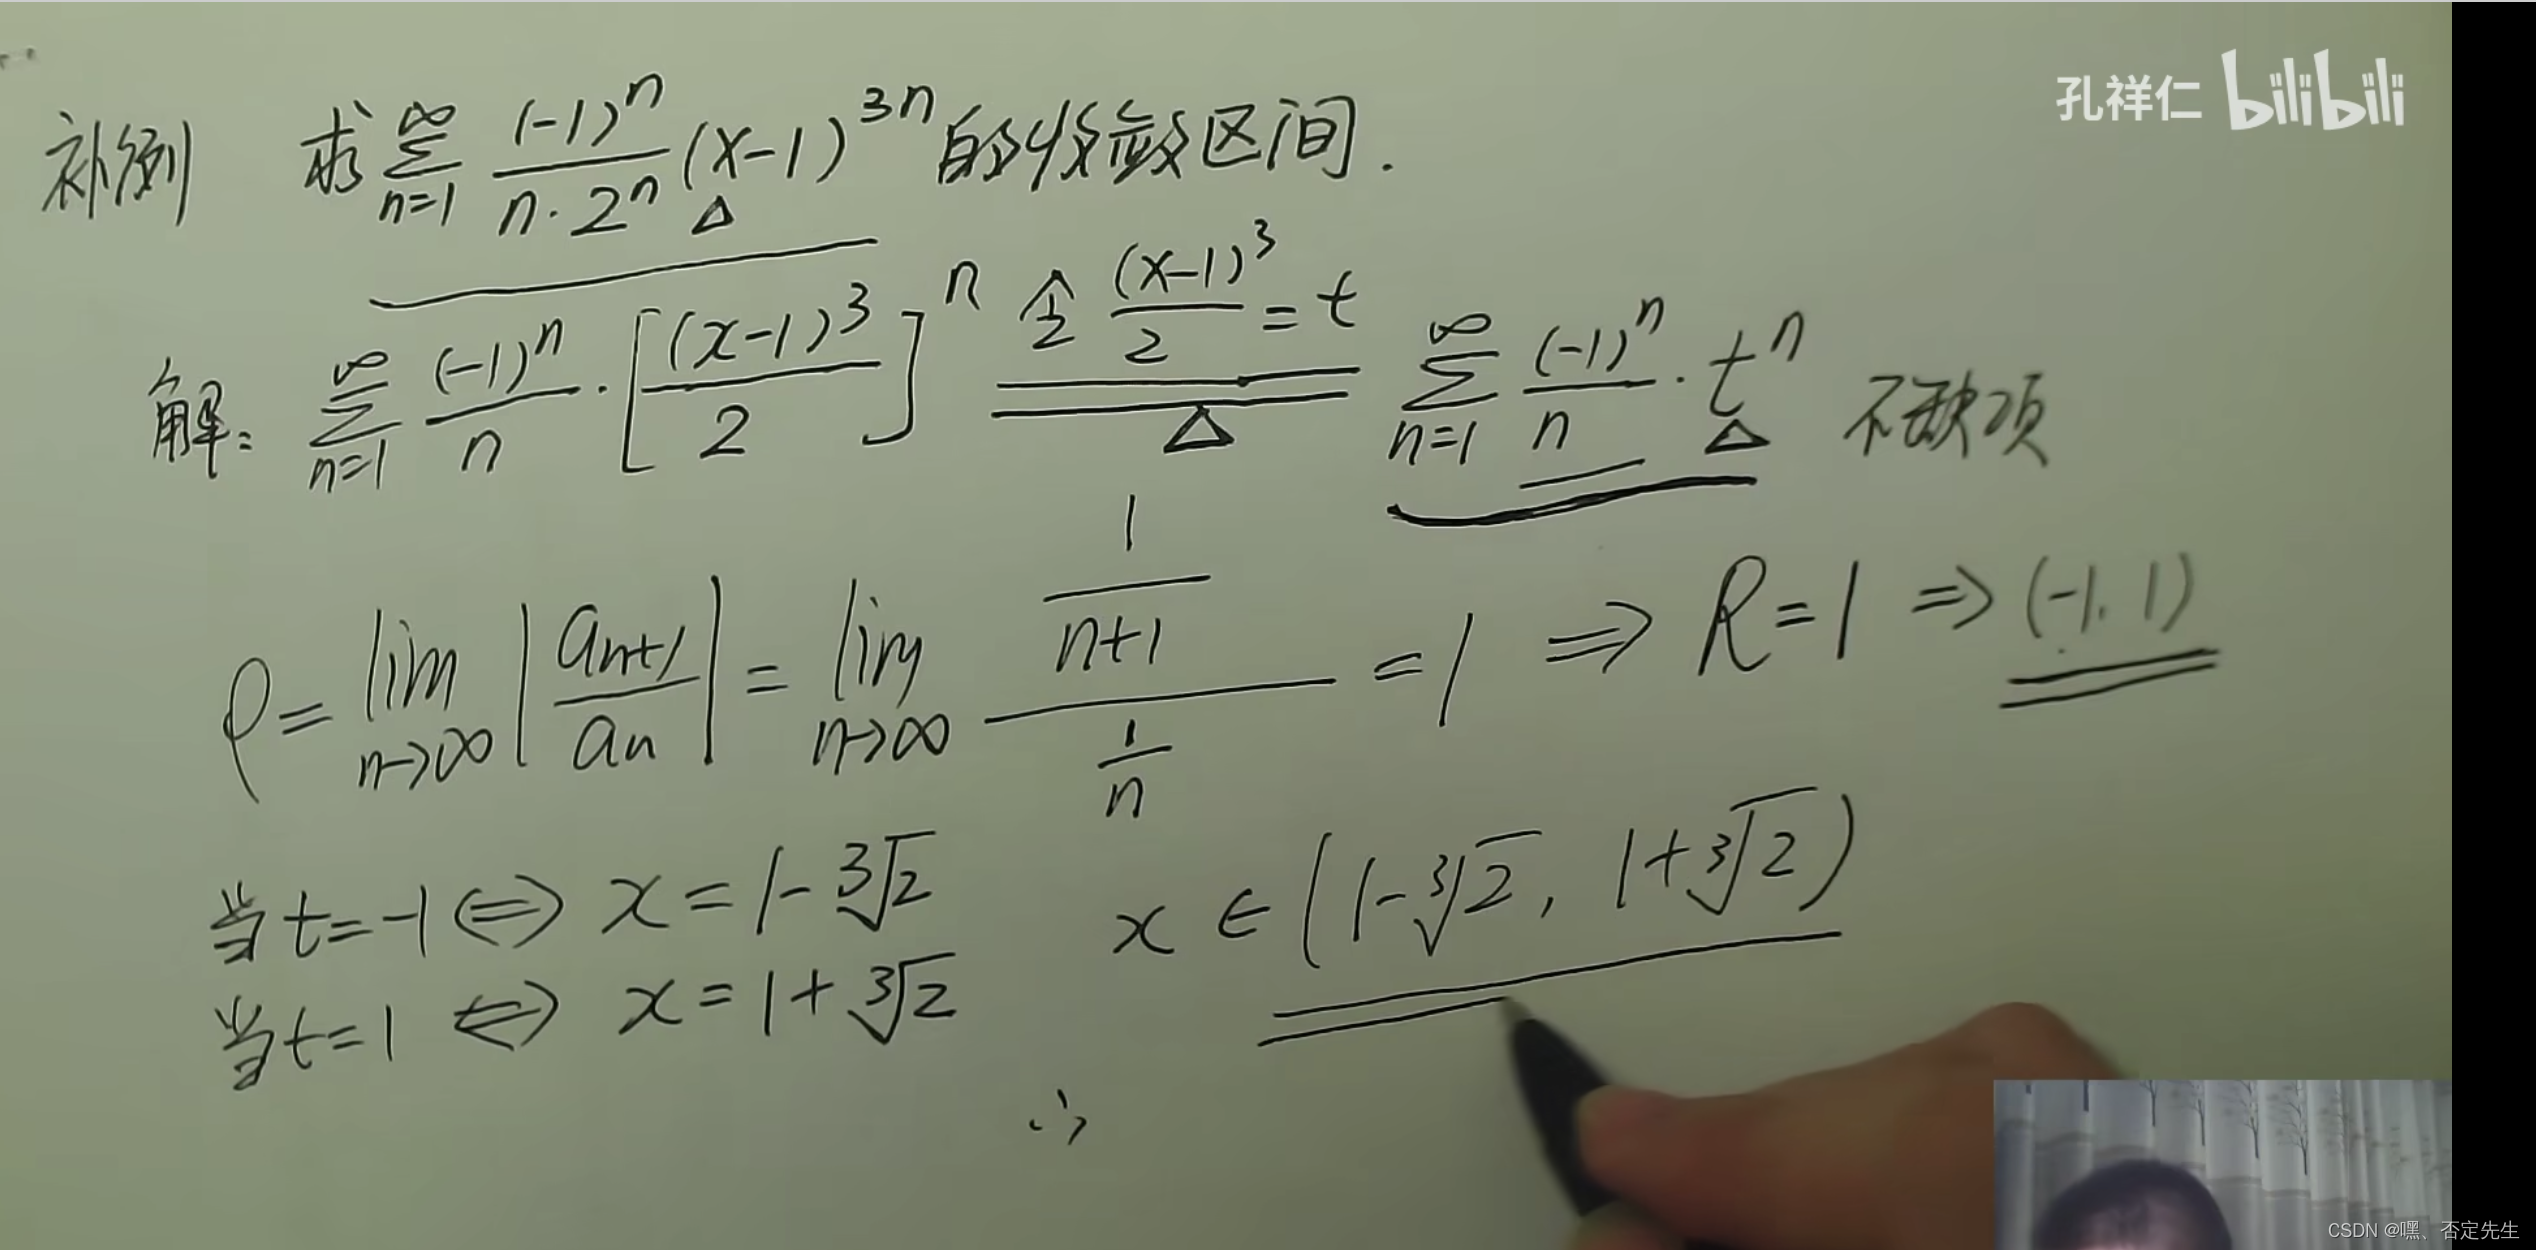 孔祥仁 bilibili
补例 求∑_{n=1}^{∞} \frac{(-1)^n}{n·2^n}(x-1)^{3n}的收敛区间.
解: ∑_{n=1}^{∞} \frac{(-1)^n}{n}·[\frac{(x-1)^3}{2}]^n 令\frac{(x-1)^3}{2}=t ∑_{n=1}^{∞} \frac{(-1)^n}{n}·t^n 不缺项
ρ=lim_{n→∞}|\frac{a_{n+1}}{a_n}|=lim_{n→∞} \frac{\frac{1}{n+1}}{\frac{1}{n}}=1 ⇒ R=1 ⇒ (-1,1)
当t=-1⇔x=1-∛2 x∈(1-∛2, 1+∛2)
当t=1⇔x=1+∛2
∴
CSDN @嘿、否定先生